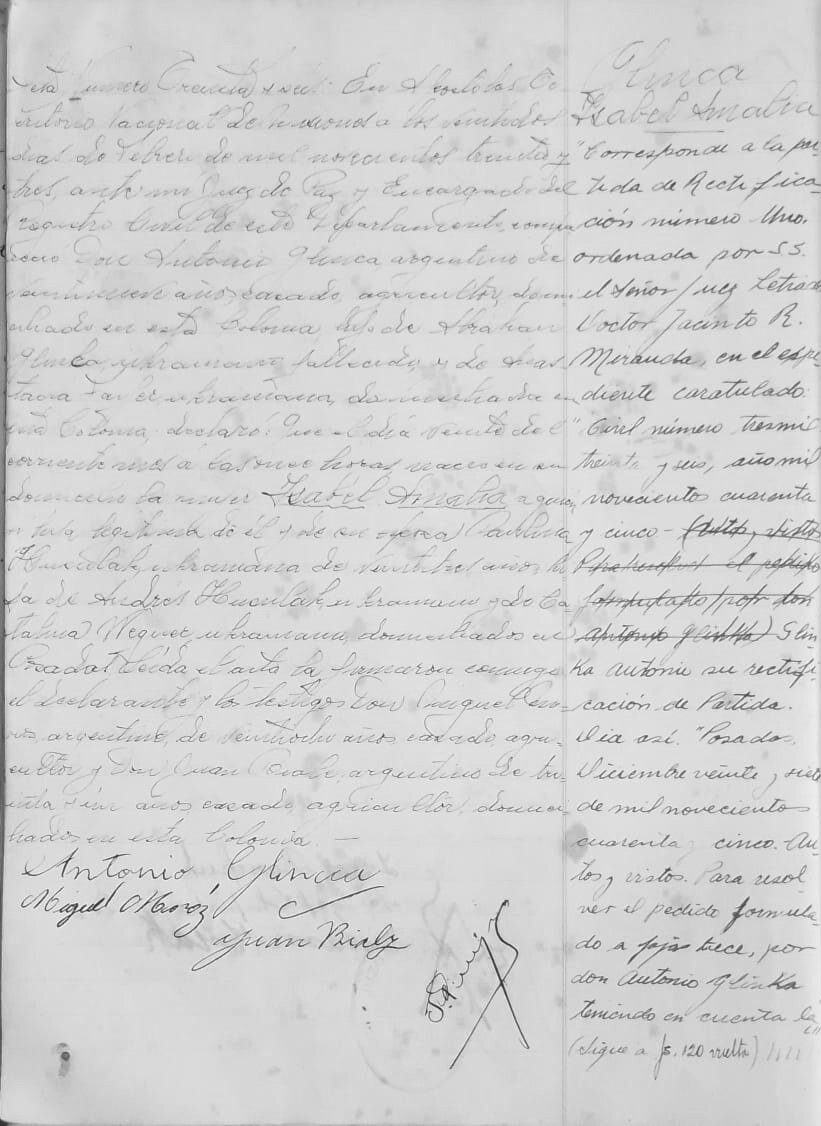 Acta Numero Treinta y seis: En Apostoles Te-
rritorio Nacional de Misiones a los veintidos
dias de Febrero de mil novecientos treinta y
tres, ante mi Juez de Paz y Encargado del
registro Civil de este Departamento, compa
reció Don Antonio Glinca, argentino de
veintinueve años, casado, agricultor, domi-
ciliado en esta Colonia, hijo de Abrahan
Glinca, ukraniano, fallecido y de Anas-
tacia ukraniana, domiciliada en
esta Colonia, declaró: Que el día veinte del
corriente mes a las once horas nacio en su
domicilio la mujer Isabel Amalia a quien
hija legitima de él y de su esposa Paulina
Huculak, ukraniana de veintitres años, hi
ja de Andres Huculak, ukraniano y de Ca
talina Wegner, ukraniana, domiciliados en
Leida el acta la firmaron conmigo
el declarante y los testigos Don Miguel Mo-
roz, argentino, de veintiocho años casado, agri-
cultor y Don Juan Bialy, argentino de tre
inta y un años, casado, agricultor, domici-
liados en esta Colonia. —
Antonio Glinca
Miguel Moróz
Juan Bialy
Glinca
Isabel Amalia
"Corresponde a la par-
tida de Rectifica-
ción número Uno.
ordenada por S.S.
el Señor Juez Letrado
Doctor Jacinto R.
Miranda, en el espe-
diente caratulado:
"Civil número tresmil
treinta y seis, año mil
novecientos cuarenta
y cinco - (Autos y vistos
Para resolver el pedido
formulado por don
Antonio Glinka) Glin
Ka Antonio su rectifi-
cación de Partida.
Dice así. "Posadas,
Diciembre veinte y siete
de mil novecientos
cuarenta y cinco. Au-
tos y vistos. Para resol-
ver el pedido formula-
do a fojas trece, por
don Antonio Glinka
teniendo en cuenta la"
(sigue a fs. 120 vuelta)